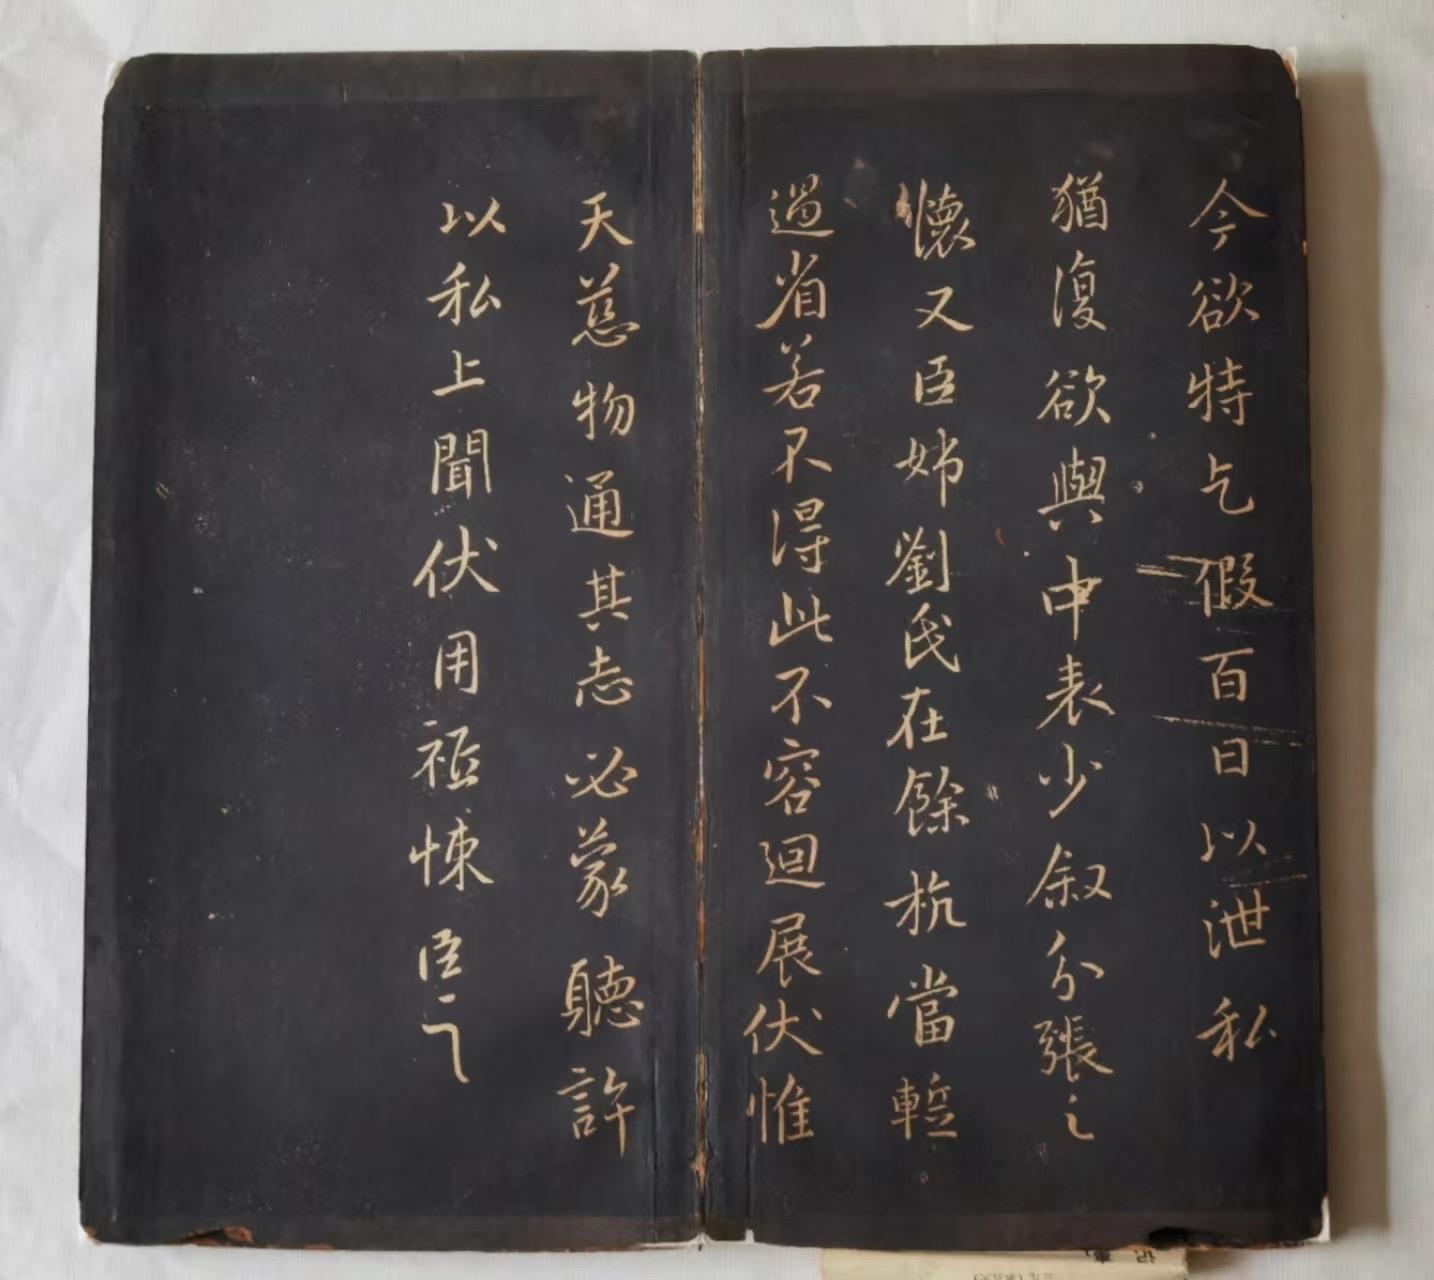 今欲特乞假百日以泄私
猶復欲與中表少叙分張之
懷又臣姊劉氏在餘杭當蹔
過省若不得此不容迴展伏惟
天慈物通其志必蒙聽許
以私上聞伏用祗悚臣